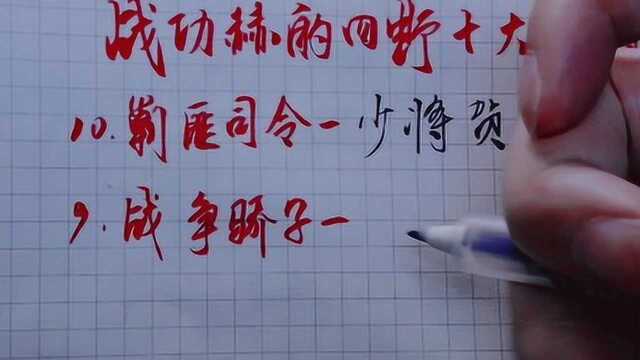 战功赫的四野十大
10.剿匪司令－少将贺
9.战争骄子－